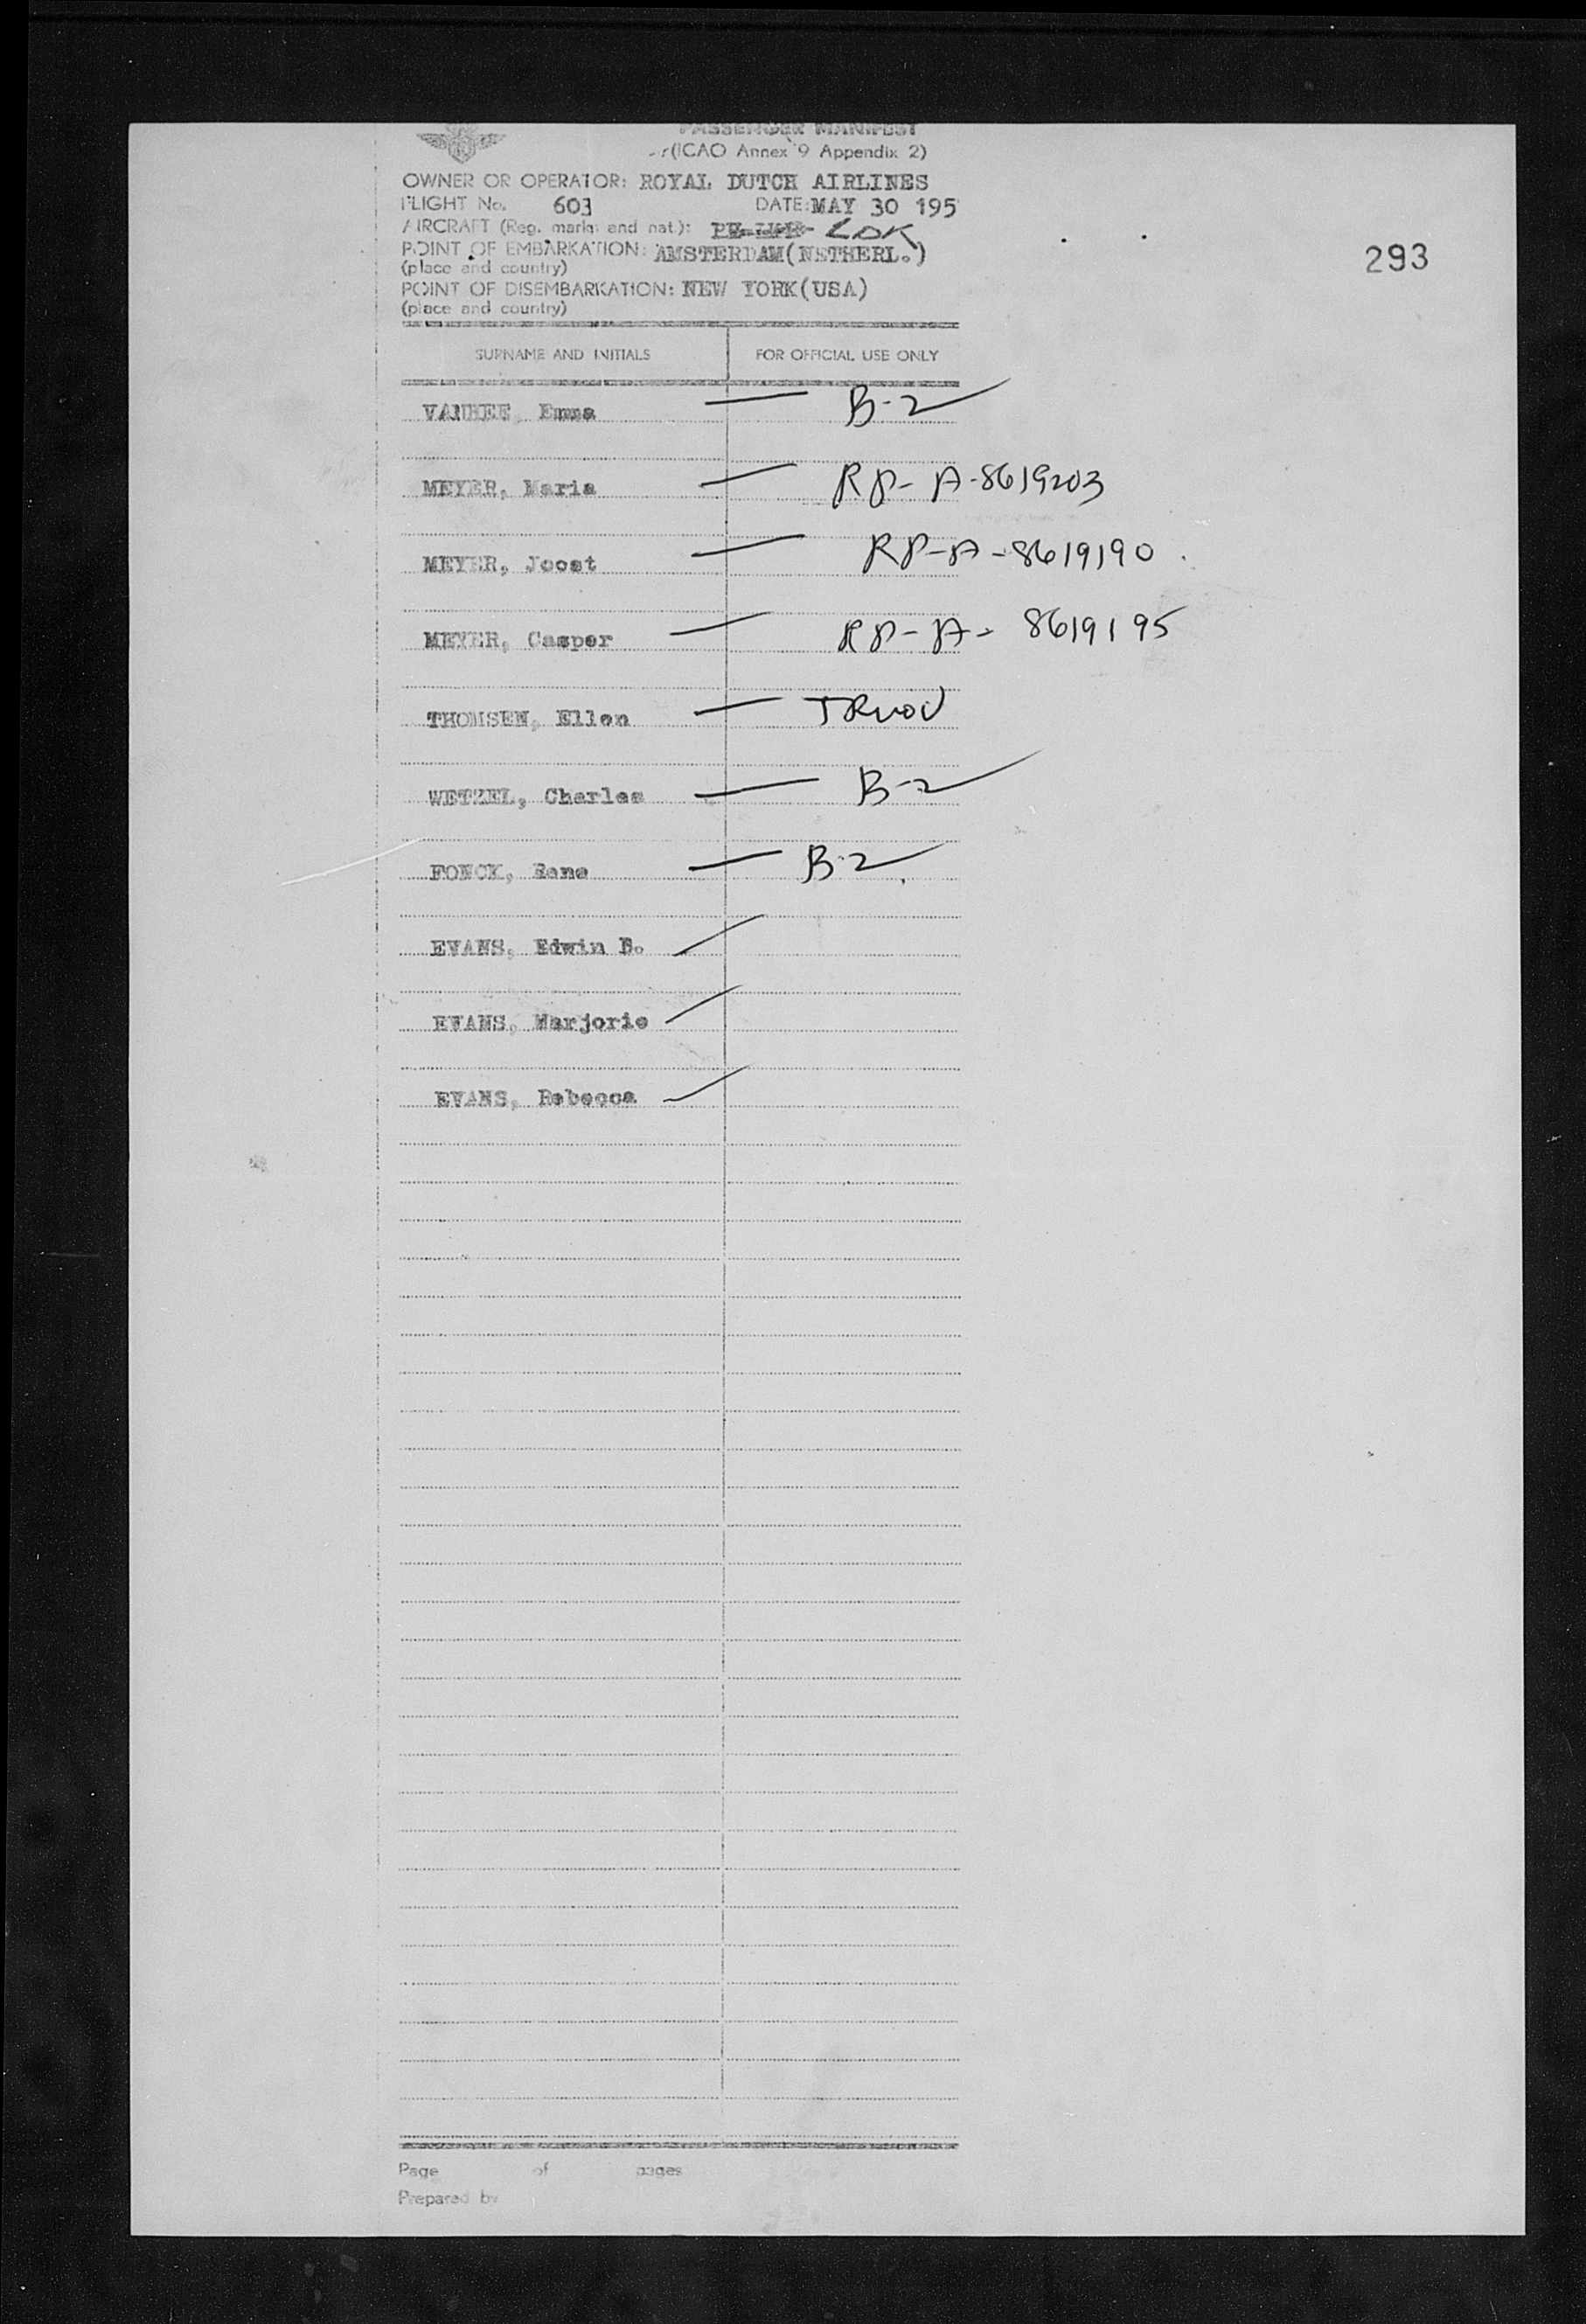 PASSENGER MANIFEST
(ICAO Annex 9 Appendix 2)
OWNER OR OPERATOR: ROYAL DUTCH AIRLINES
FLIGHT No. 603 DATE: MAY 30 195
AIRCRAFT (Reg. marks and nat.): LDK
293
POINT OF EMBARKATION: AMSTERDAM(NETHERL.)
(place and country)
POINT OF DISEMBARKATION: NEW YORK(USA)
(place and country)
SURNAME AND INITIALS FOR OFFICIAL USE ONLY
VANHEE, Emma — B-2
MEYER, Maria — RP-A-8619203
MEYER, Joost — RP-A-8619190
MEYER, Casper — RP-A-8619195
THOMSEN, Ellen —
WETZEL, Charles — B-2
FONCK, Rene — B-2
EVANS, Edwin B.
EVANS, Marjorie
EVANS, Rebecca
Page of pages
Prepared by